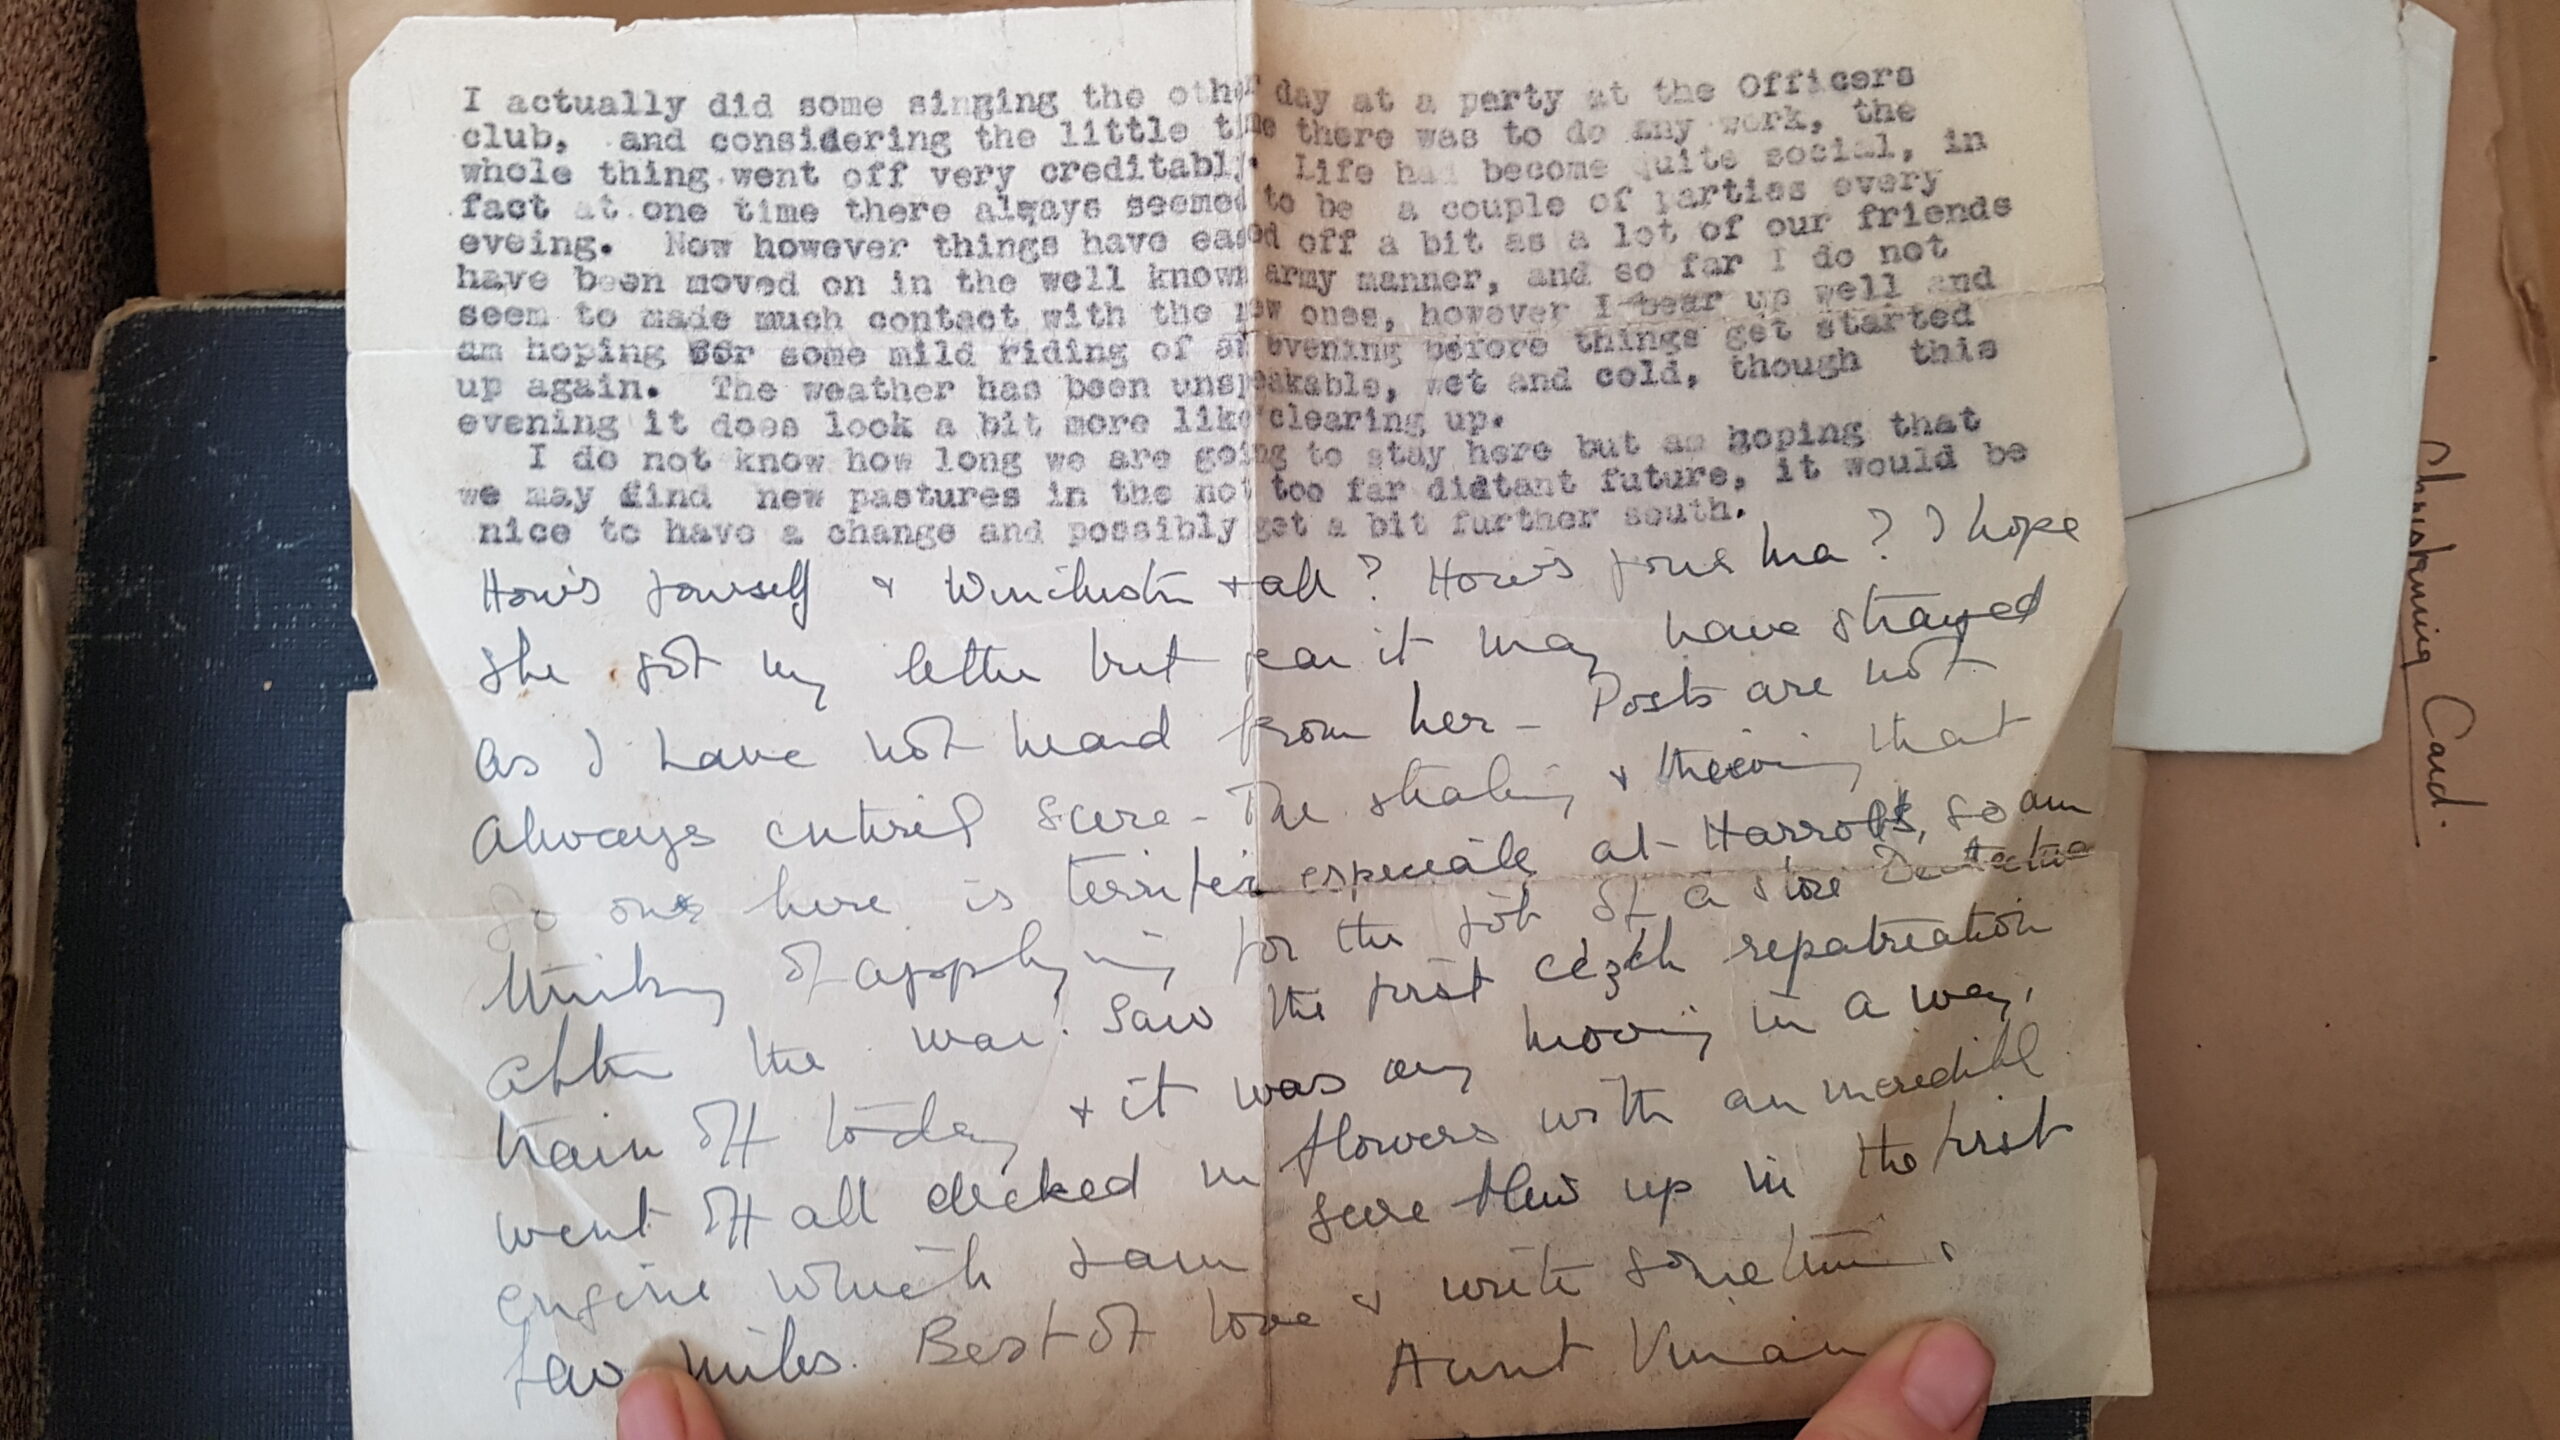 I actually did some singing the other day at a party at the Officers
club, and considering the little time there was to do any work, the
whole thing went off very creditably. Life had become quite social, in
fact at one time there always seemed to be a couple of parties every
eveing. Now however things have eased off a bit as a lot of our friends
have been moved on in the well known army manner, and so far I do not
seem to made much contact with the new ones, however I bear up well and
am hoping for some mild riding of an evening before things get started
up again. The weather has been unspeakable, wet and cold, though this
evening it does look a bit more like clearing up.
I do not know how long we are going to stay here but am hoping that
we may find new pastures in the not too far distant future, it would be
nice to have a change and possibly get a bit further south.
How's yourself & Winchester & all? How's your ma? I hope
she got my letter but fear it may have strayed
as I have not heard from her - Posts are not
always entirely sure - The stealing & thieving that
go ons here is terrific especially at Harrods, so am
thinking of applying for the job of a store Detective
after the war. Saw the first Czech repatreation
train off today & it was very moving in a way,
went off all decked in flowers with an incredible
engine which I am sure blew up in the first
few miles. Best of love & write sometime
Aunt Vivian
Christening Card.